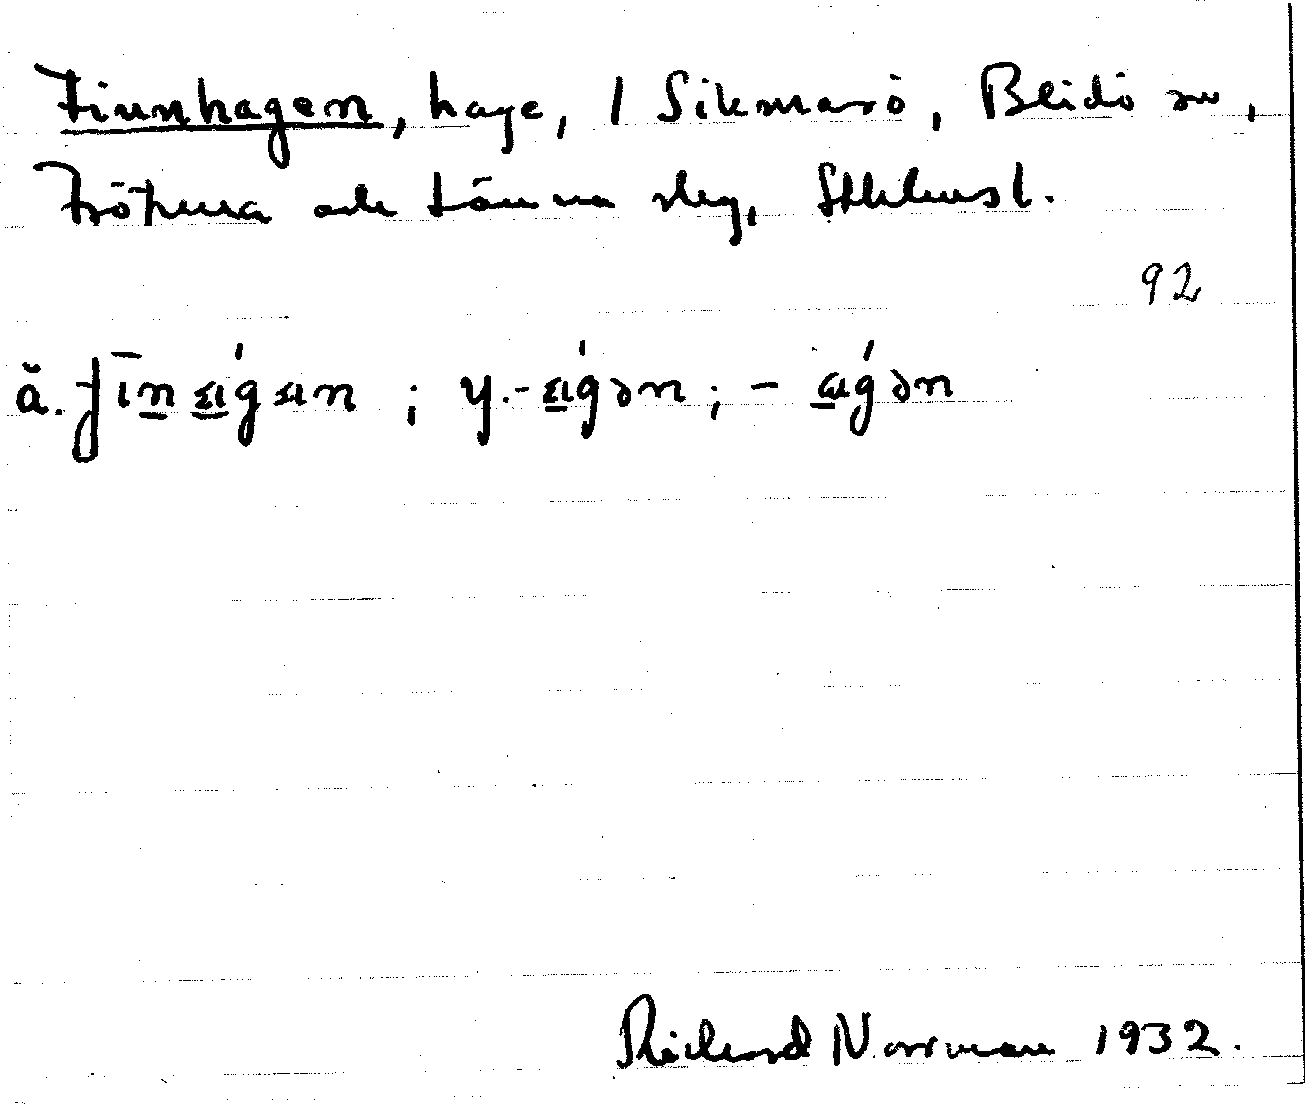 Finnhagen, hage, / Sikmarö, Blidö sn,
Frötuna och Länna skg, Sthlms l.
92
ä. fīnɑ́gɑn ; y. -ɑ́gən ; - ɑ́gən
Richard Norrman 1932.